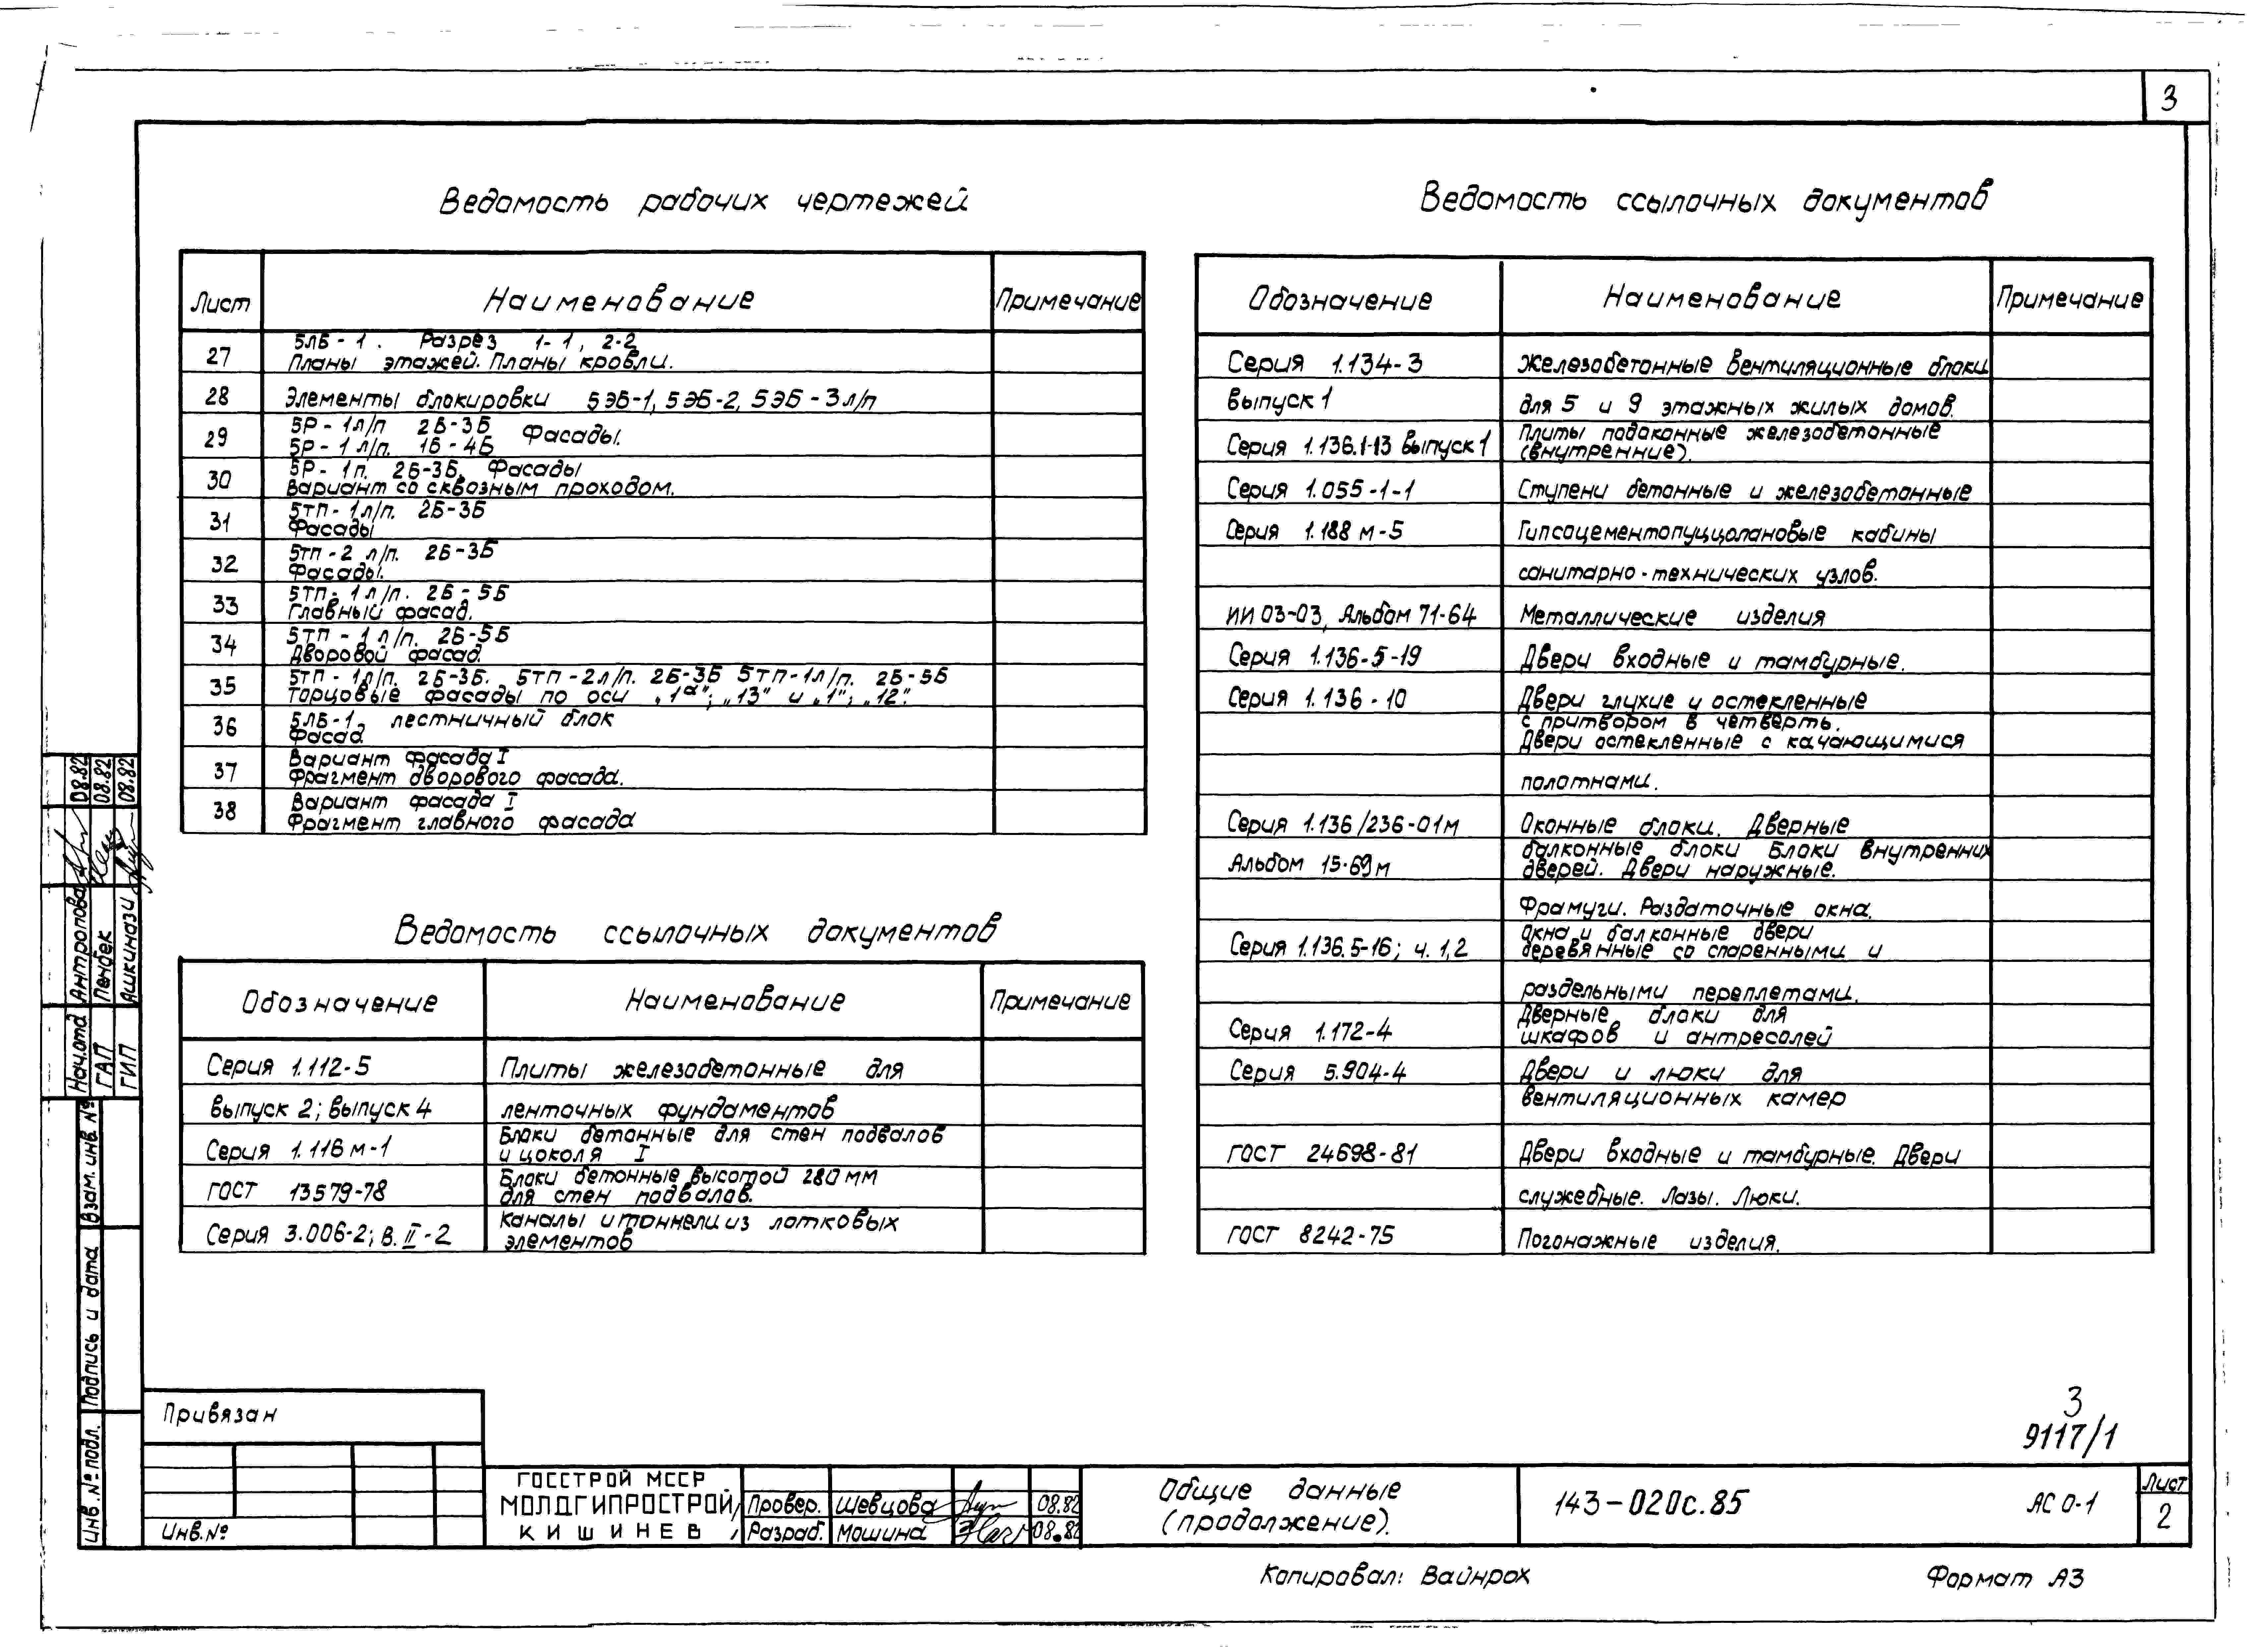 3
Ведомость рабочих чертежей
Лист Наименование Примечание
27 5ЛБ-1. Разрез 1-1, 2-2
Планы этажей. Планы кровли.
28 Элементы блокировки 5ЭБ-1, 5ЭБ-2, 5ЭБ-3л/п
29 5Р-1л/п 2Б-3Б
5Р-1л/п. 1Б-4Б Фасады.
30 5Р-1п. 2Б-3Б. Фасады
Вариант со сквозным проходом.
31 5ТП-1л/п. 2Б-3Б
Фасады
32 5ТП-2 л/п. 2Б-3Б
Фасады.
33 5ТП-1л/п. 2Б-5Б
Главный фасад.
34 5ТП-1л/п. 2Б-5Б
Дворовой фасад.
35 5ТП-1л/п. 2Б-3Б. 5ТП-2л/п. 2Б-3Б 5ТП-1л/п. 2Б-5Б
Торцовые фасады по оси „1а"; „13" и „1"; „12".
36 5ЛБ-1, лестничный блок
Фасад
37 Вариант фасада I
Фрагмент дворового фасада.
38 Вариант фасада I
Фрагмент главного фасада
Ведомость ссылочных документов
Обозначение Наименование Примечание
Серия 1.112-5 Плиты железобетонные для
выпуск 2; выпуск 4 ленточных фундаментов
Серия 1.116м-1 Блоки бетонные для стен подвалов
и цоколя I
ГОСТ 13579-78 Блоки бетонные высотой 280мм
для стен подвалов.
Серия 3.006-2; в. II-2 Каналы и тоннели из лотковых
элементов
Ведомость ссылочных документов
Обозначение Наименование Примечание
Серия 1.134-3 Железобетонные вентиляционные блоки
выпуск 1 для 5 и 9 этажных жилых домов.
Серия 1.136.1-13 выпуск 1 Плиты подоконные железобетонные
(внутренние).
Серия 1.055-1-1 Ступени бетонные и железобетонные
Серия 1.188м-5 Гипсоцементопуццолановые кабины
санитарно-технических узлов.
ИИ 03-03, Альбом 71-64 Металлические изделия
Серия 1.136-5-19 Двери входные и тамбурные.
Серия 1.136-10 Двери глухие и остекленные
с притвором в четверть.
Двери остекленные с качающимися
полотнами.
Серия 1.136/236-01м Оконные блоки. Дверные
Альбом 15-69м балконные блоки Блоки внутренних
дверей. Двери наружные.
Фрамуги. Раздаточные окна.
Серия 1.136.5-16; ч. 1,2 Окна и балконные двери
деревянные со спаренными и
раздельными переплетами.
Серия 1.172-4 Дверные блоки для
шкафов и антресолей
Серия 5.904-4 Двери и люки для
вентиляционных камер
ГОСТ 24698-81 Двери входные и тамбурные. Двери
служебные. Лазы. Люки.
ГОСТ 8242-75 Погонажные изделия.
Нач.отд Антропова 08.82
ГАП Пендек 08.82
ГИП Ашкинази 08.82
Взам. инв №
Подпись и дата
Инв. № подл.
Привязан
Инв.№
3
9117/1
ГОССТРОЙ МССР
МОЛДГИПРОСТРОЙ
КИШИНЕВ
Провер. Шевцова 08.82
Разраб. Мошина 08.82
Общие данные
(продолжение).
143-020с.85
АС 0-1
Лист
2
Копировал: Вайнрох
Формат А3